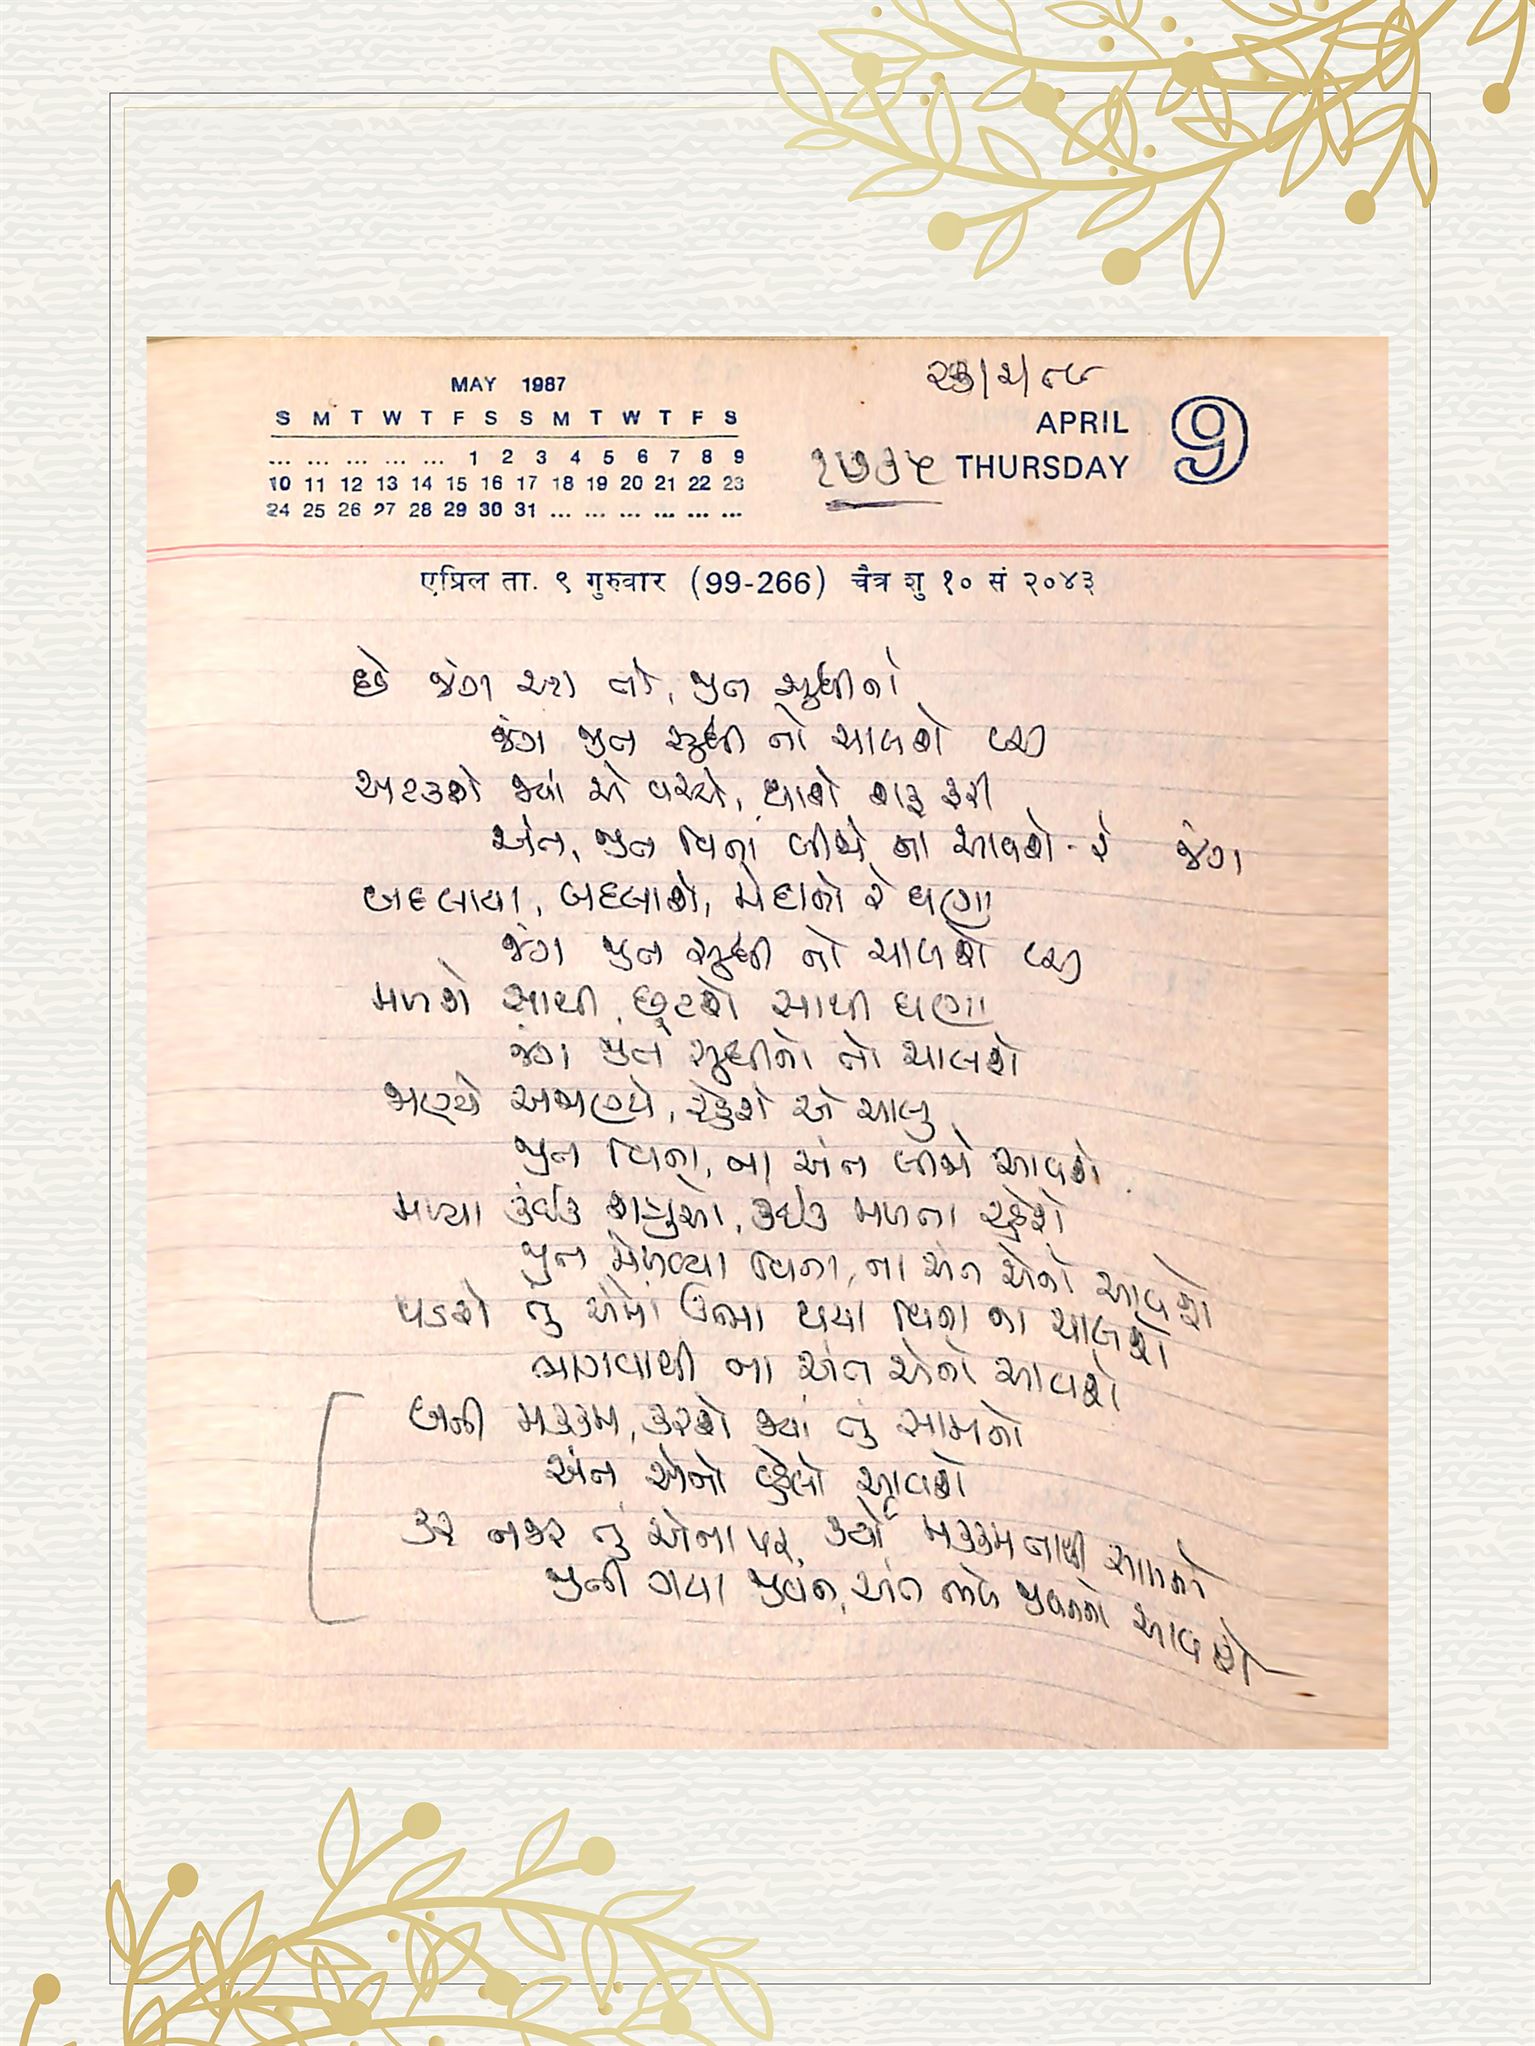 MAY 1987
S M T W T F S S M T W T F S
... ... ... ... ... 1 2 3 4 5 6 7 8 9
10 11 12 13 14 15 16 17 18 19 20 21 22 23
24 25 26 27 28 29 30 31 ... ... ... ... ... ...
APRIL
THURSDAY 9
૨૭૩૯
एप्रिल ता. ९ गुरुवार (99-266) चैत्र शु १० सं २०४३
છે જંગ તો, જીત સુધીનો
જંગ જીત સુધી નો ચાલશે
અટકશે જ્યાં એ વચ્ચે, થાશે શરૂ ફરી
અંત, જીત વિના બીજે ના આવશે - રે જંગ
બદલાયા, બદલાશે, મેદાનો રે ઘણા
જંગ જીત સુધી નો ચાલશે
મળશે સાથી, છૂટશે સાથી ઘણા
જંગ જીત સુધીનો તો ચાલશે
જાણ્યે અજાણ્યે, રહેશે એ ચાલુ
જીત વિના, ના અંત બીજો આવશે
મળ્યા કંઈક શત્રુઓ, કંઈક મળતા રહેશે
જીત મેળવ્યા વિના, ના અંત એનો આવશે
પડશે તું એમાં ઉભા થયા વિના ના ચાલશે
ભાગવાથી ના અંત એનો આવશે
બની મક્કમ, કરશે જ્યાં તું સામનો
અંત એનો વ્હેલો આવશે
કર નજર તું એના પર, કર્યો મક્કમતાથી સામનો
જીતી ગયા જીવન, અંત ભલે જીવનનો આવશે